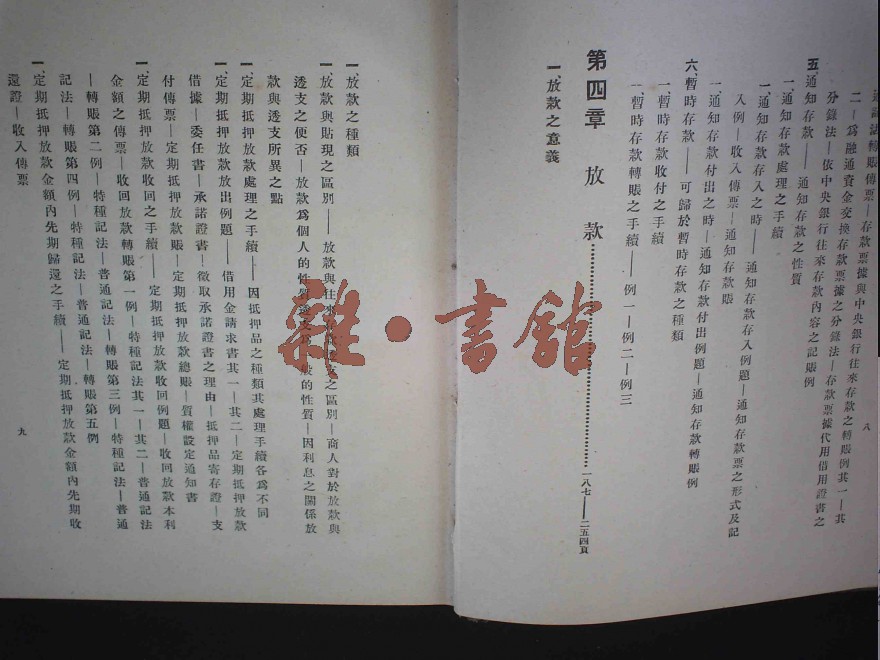 二—爲融通資金交換存款票據之分錄法—存款票據代用借用證書之
分錄法—依中央銀行往來存款內容之記賬例
五、通知存款——通知存款之性質
一、通知存款處理之手續
一、通知存款存入之時——通知存款存入例題—通知存款票之形式及記
入例—收入傳票—通知存款賬
一、通知存款付出之時—通知存款付出例題—通知存款轉賬例
六、暫時存款——可歸於暫時存款之種類
一、暫時存款收付之手續
一、暫時存款轉賬之手續——例一—例二—例三
第四章 放款……一八七——二五四頁
一、放款之意義
八
一、放款之種類
一、放款與貼現之區別——放款與往來之區別—商人對於放款與
透支之便否—放款爲個人的性質透支般的性質—因利息之關係放
款與透支所異之點
一、定期抵押放款處理之手續——因抵押品之種類其處理手續各爲不同
一、定期抵押放款放出例題——借用金請求書其一—其二—定期抵押放款
借據—委任書—承諾證書—徵取承諾證書之理由—抵押品寄存證—支
付傳票—定期抵押放款賬—定期抵押放款總賬—質權設定通知書
一、定期抵押放款收回之手續——定期抵押放款收回例題—收回放款本利
金額之傳票—收回放款轉賬第一例—特種記法其一—其二—普通記法
—轉賬第二例—特種記法—普通記法—轉賬第三例—特種記法—普通
記法—轉賬第四例—特種記法—普通記法—轉賬第五例
一、定期抵押放款金額內先期歸還之手續——定期抵押放款金額內先期收
還證—收入傳票
九
雜·書館